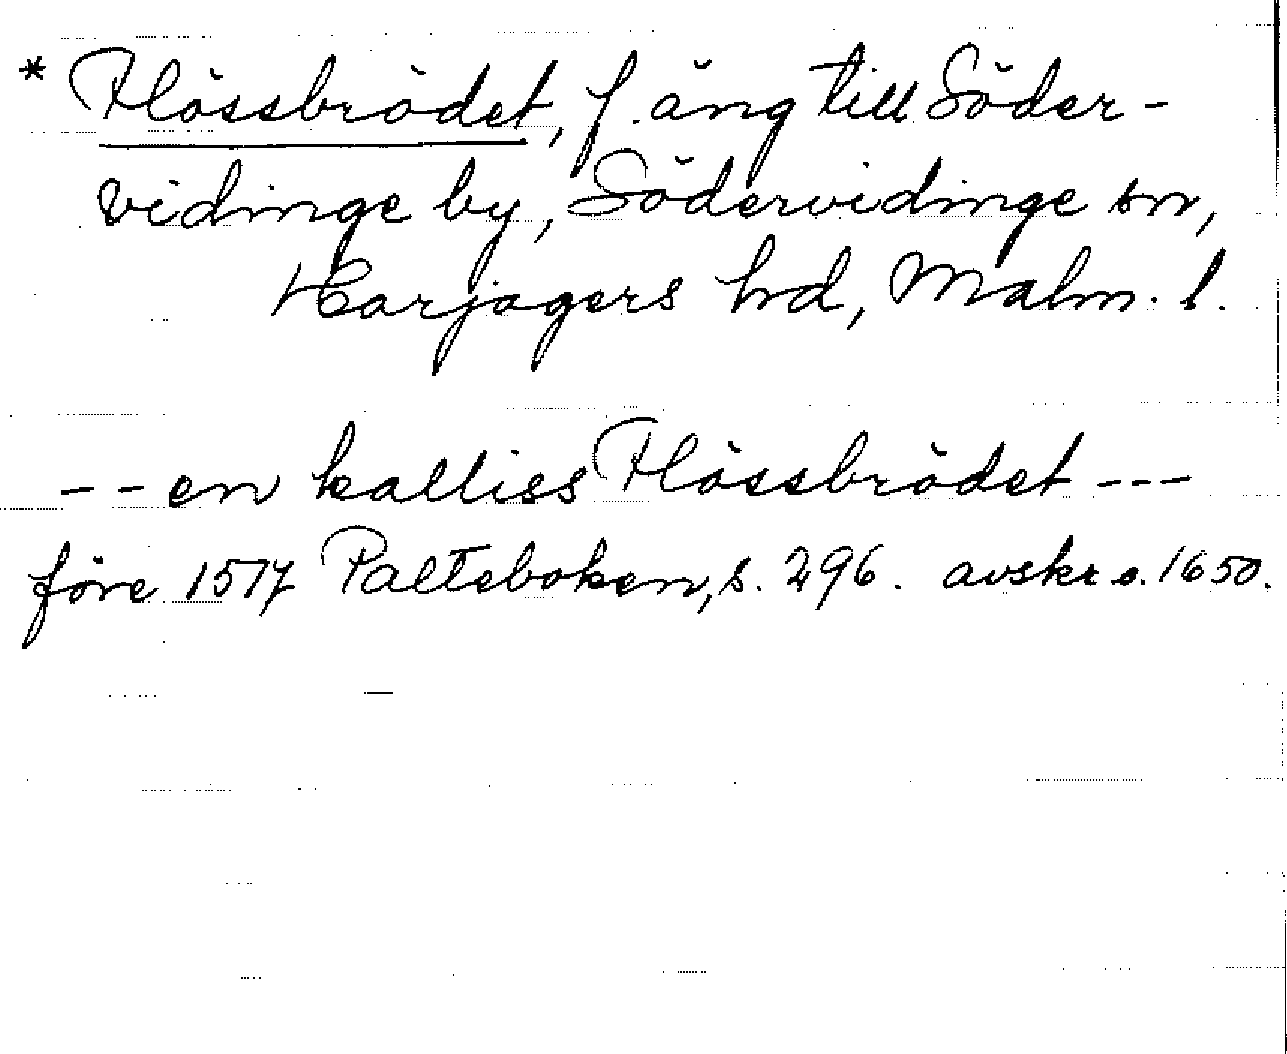 * Flössbrödet, f. äng till Söder-
vidinge by, Södervidinge sn,
Harjagers hd, Malm. l.
-- en kalliss Flössbrödet ---
före 1517 Palteboken, s. 296. avskr. o. 1650.